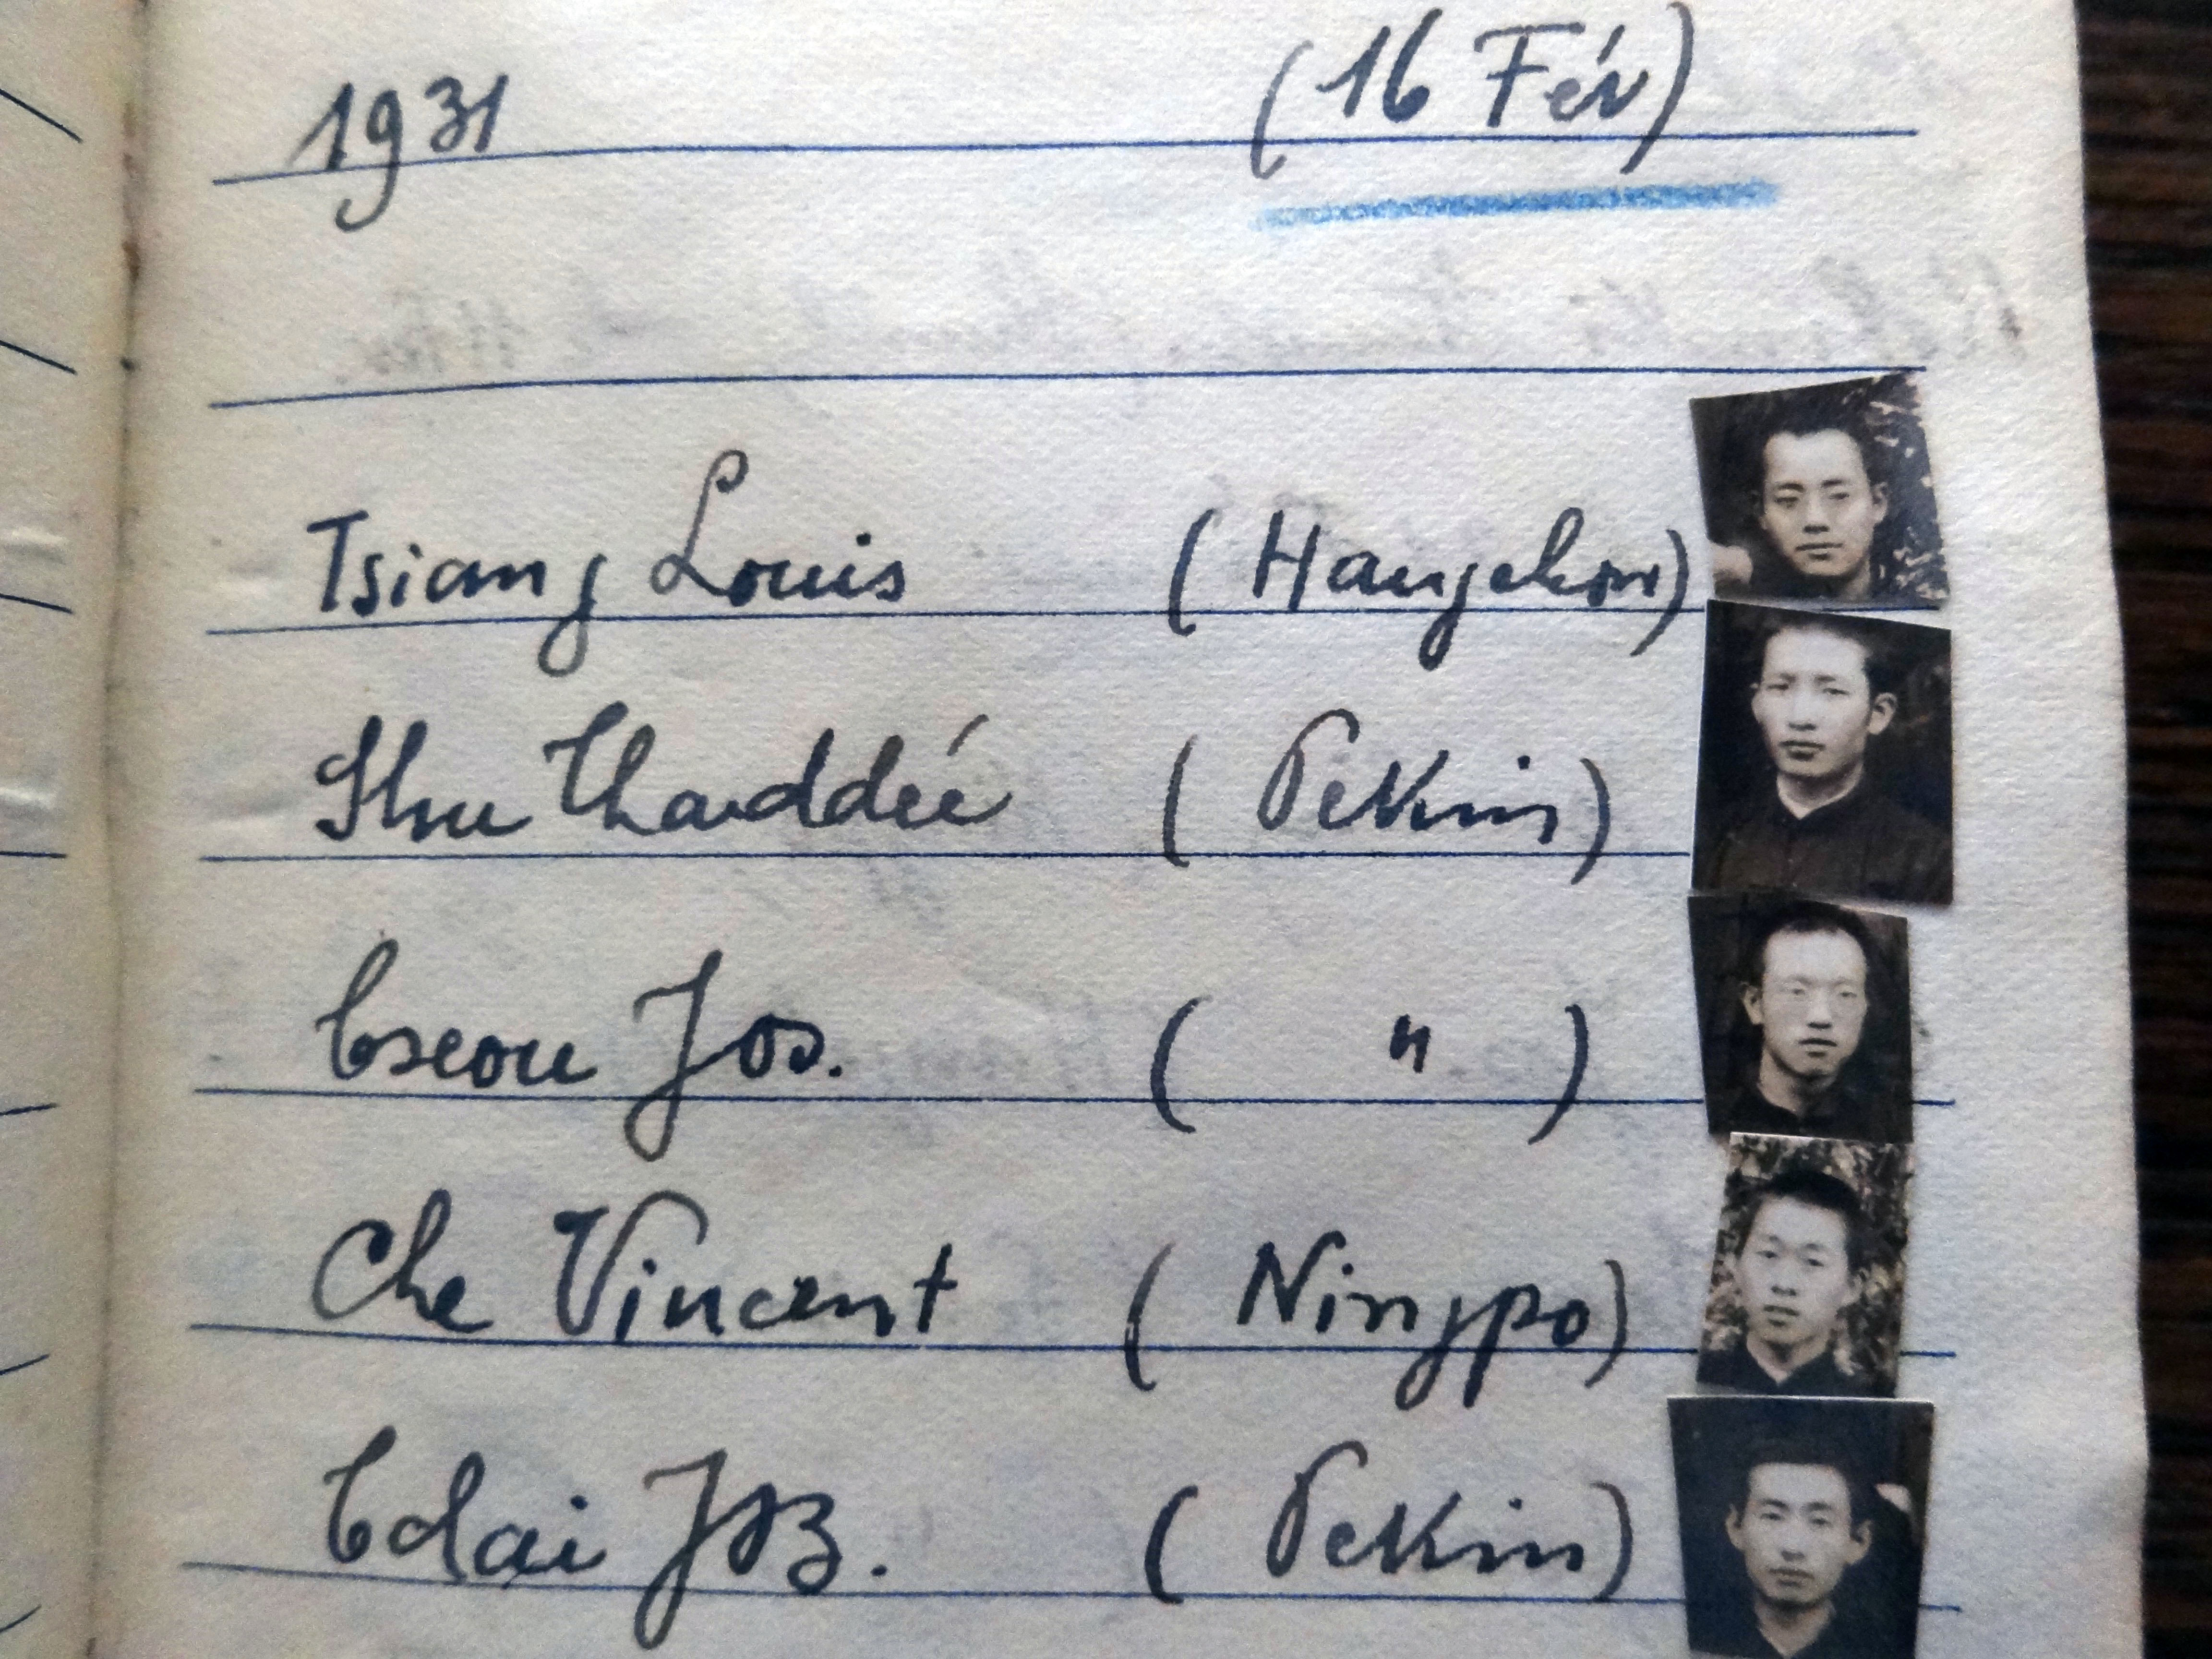 1931 (16 Fév)
Tsiang Louis (Hangchow)
Shu Thaddée (Pekin)
Tseou Jos. ( " )
Che Vincent (Ningpo)
Jos. (Pekin)